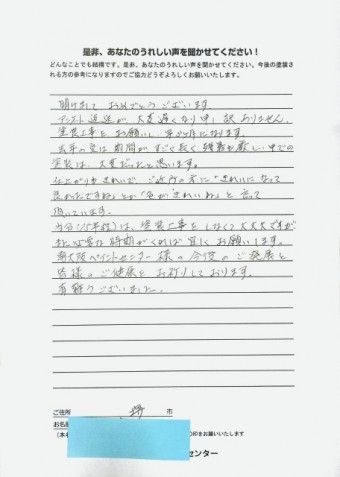 是非、あなたのうれしい声を聞かせてください！
どんなことでも結構です。是非、あなたのうれしい声を聞かせてください。今後の塗装さ
れる方の参考になりますのでご協力どうぞよろしくお願いいたします。
明けましておめでとうございます。
アンケート返送が、大変遅くなり申し訳ありません。
塗装工事をお願いし、半ヶ月になります。
去年の夏は期間がすごく長く残暑が厳しい中での
塗装は、大変だったと思います。
仕上がりもきれいで、ご近所の方に「きれいになって
良かったですね」とか「色がきれいね」と言って
頂いています。
当分(15年程)は、塗装工事をしなくて大丈夫ですが
または時期がくれば宜しくお願いします。
南大阪ペイントセンター様の今後のご発展と
皆様のご健康をお祈りしております。
有難うございました。
ご住所 堺 市
お名前
（本 印をお願いいたします
センター